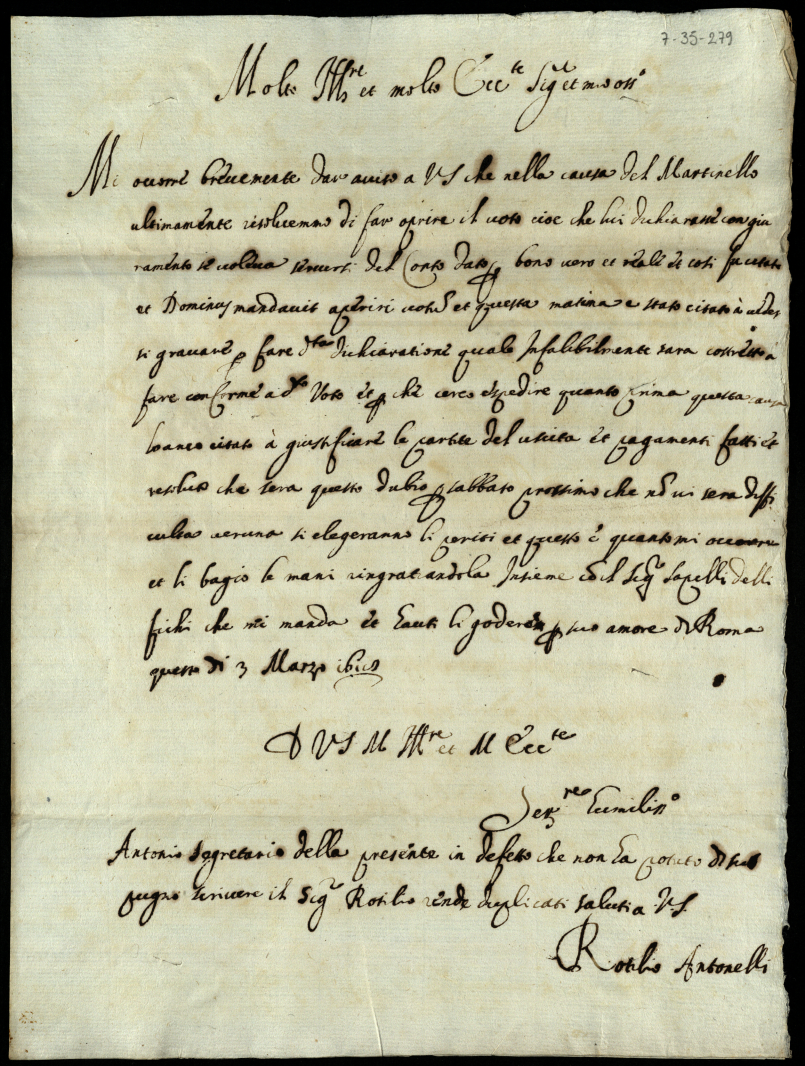 7-35-279
Molto Ill.re et molto Ecc.te Sig.r et mio oss.o
Mi ocorre brevemente dar aviso a VS che nella causa del Martinello
ultimamente risolvemmo di far aprire il voto cioe che lui dichiarasse con giu
ramento se voleva servirsi del Conto dato p bono vero et reale et cosi fu citato
et Dominus mandavit aperiri votu et questa matina e stato citato à veder
si gravare p fare d.ta dichiaratione quale Infalibilmente sara costretto à
fare conforme a d.to Voto et p che cerco espedire quanto prima questa causa
lo anco citato à giustificare le partite del uscita et pagamenti fatti et
resoluto che sera questo dubio p sabbato prossimo che no vi sera diffi
culta veruna si elegeranno li periti et questo è quanto mi occorre
et li bagio le mani ringratiandola Insieme co il Sig.r Sapelli delli
fichi che mi manda et hauti li goderò p suo amore di Roma
questo di 3 Marzo
D VS M Ill.re et M Ecc.te
Ser.re humiliss.o
Antonio Segretario della presente in defetto che non ha potuto di suo
pugno scrivere il Sig.r Rotilio rende duplicati saluti a VS.
Rotilio Antonelli